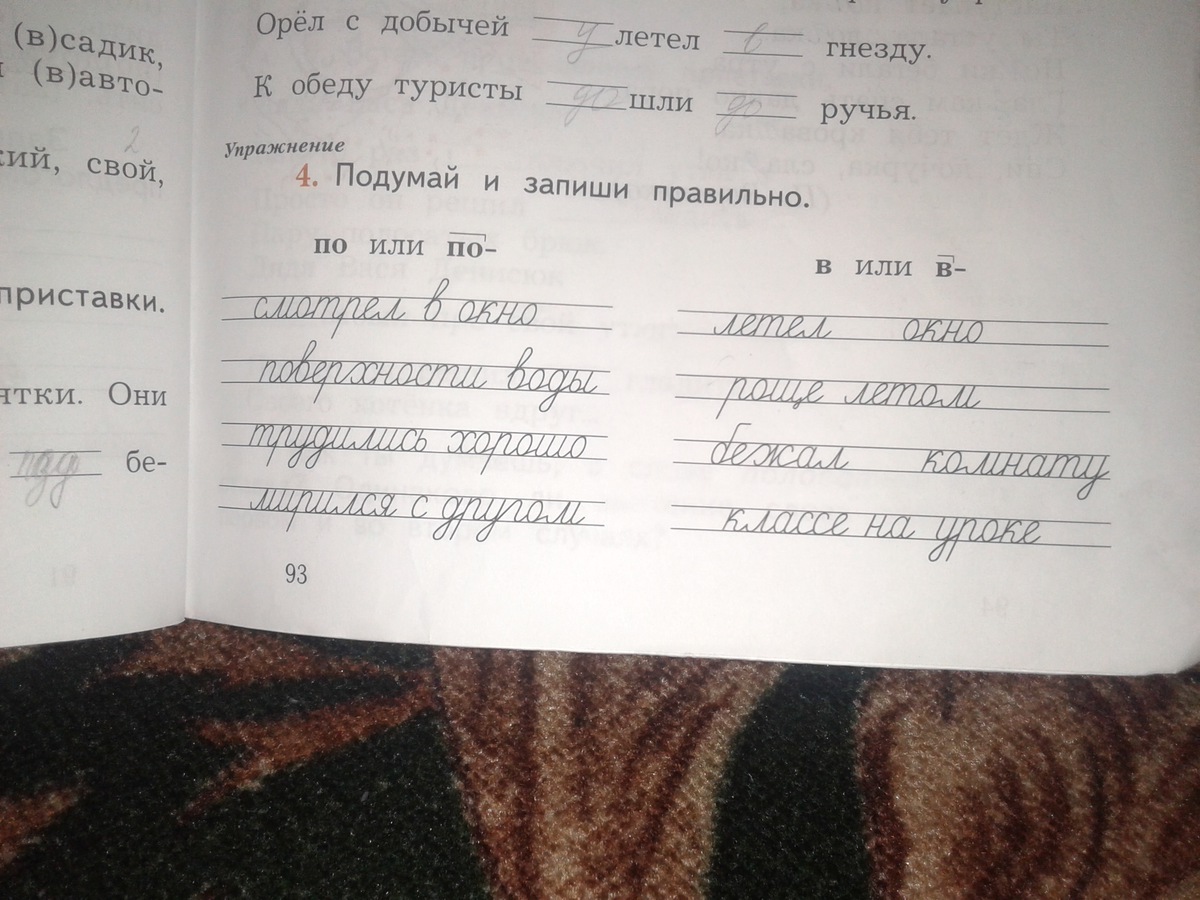 (в)садик,
(в)авто-
2
кий, свой,
приставки.
ятки. Они
над бе-
Орёл с добычей у летел в гнезду.
К обеду туристы до шли до ручья.
Упражнение
4. Подумай и запиши правильно.
по или по-
смотрел в окно
поверхности воды
трудились хорошо
мирился с другом
93
в или в-
летел окно
роще летом
бежал комнату
классе на уроке